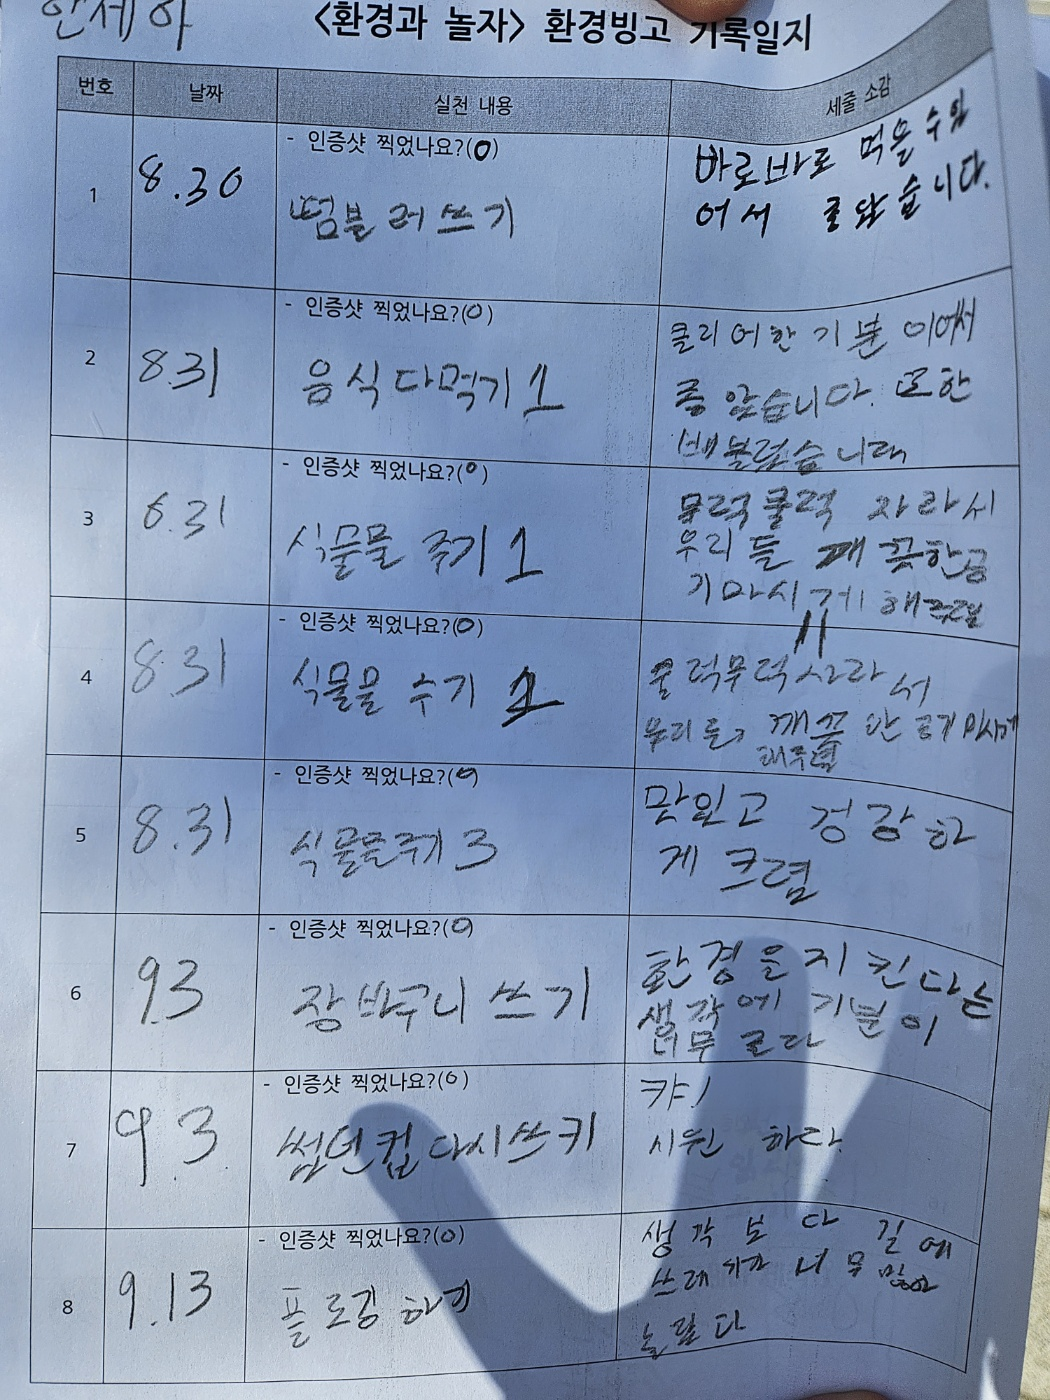 안세하
<환경과 놀자> 환경빙고 기록일지
번호 날짜 실천 내용 세줄 소감
1 8.30
- 인증샷 찍었나요?(O)
텀블러쓰기
바로바로 먹을수있
어서 좋았습니다.
2 8.31
- 인증샷 찍었나요?(O)
음식다먹기1
클리어한 기분이어서
좋았습니다. 또한
배불렀습니다
3 8.31
- 인증샷 찍었나요?(O)
식물물주기1
무럭쿨럭 자라서
우리들 깨끗한공
기마시게 해주렴
4 8.31
- 인증샷 찍었나요?(O)
식물물주기
럭무럭자라서
우리들 깨끗한 공기마시게
해주렴
5 8.31
- 인증샷 찍었나요?(O)
식물물주기3
맛있고 건강하
게 크렴
6 9.3
- 인증샷 찍었나요?(O)
장바구니 쓰기
환경을지킨다는
생각에 기분이
너무 좋다
7 9.3
- 인증샷 찍었나요?(O)
다시쓰기
캬!
시원하다.
8 9.13
- 인증샷 찍었나요?(O)
플로깅하기
생각보다 길에
쓰레기가 너무 많아
놀랐다